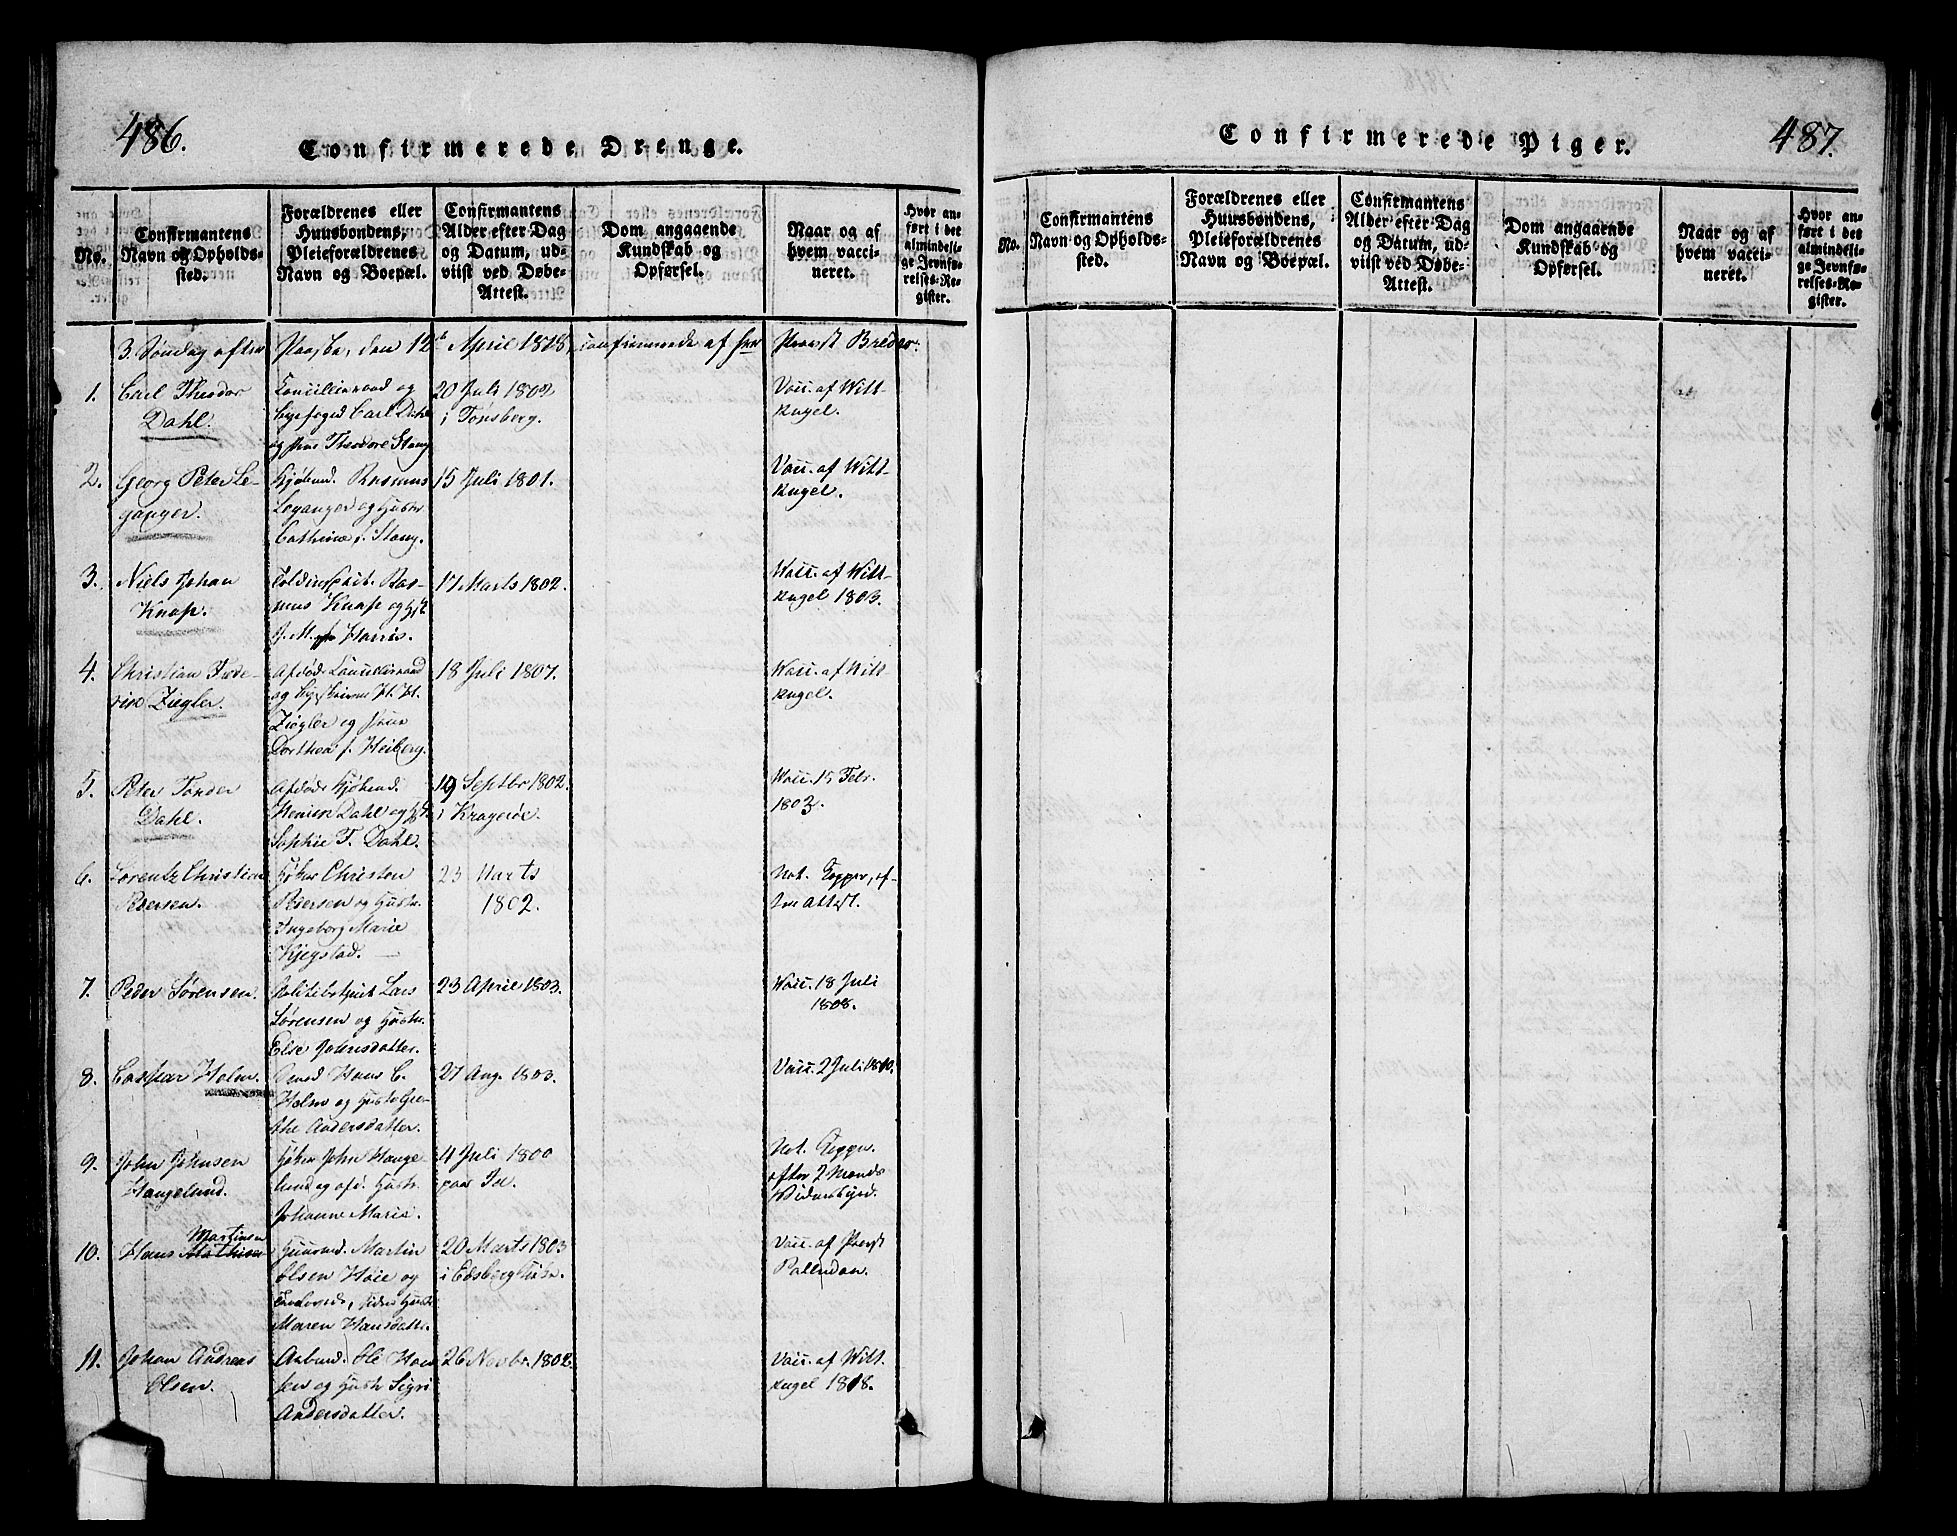 486.
Confirmerede Drenge.
No.
Confirmantens
Navn og Opholds-
sted.
Forældrenes eller
Huusbondens,
Pleieforældrenes
Navn og Boepæl.
Confirmantens
Alder efter Dag
og Datum, ud-
viist ved Døbe-
Attest.
Dom angaaende
Kundskab og
Opførsel.
Naar og af
hvem vacci-
neret.
Hvor an-
ført i det
almindeli-
ge Jevnfø-
relses-Re-
gister.
3. Søndag efter Paaske, den 12t April 1818, confirmerede af Herr Provst Bredso.
1.
Carl Theodor
Dahl.
Cancelliraad og
Byefoged Carl Dahl
og Frue Theodore Stang
20 Juli 1802
i Tønsberg.
Vacc. af Witt-
kugel.
2.
Georg Peter Le-
ganger.
Kjøbmd. Rasmus
Leganger og Hustr.
Cathrine f. Stang.
15 Juli 1801.
Vacc. af Witt-
kugel.
3.
Niels Johan
Knap.
Toldinspect. Ras-
mus Knap og
J. M. Harris.
17 Marts 1802.
Vacc. af Witt-
kugel 1803.
4.
Christian Frede-
rik Ziegler.
Afdøde Cancelliraad
og Byskriver H. H.
Ziegler og Frue
Dorthea f. Heiberg.
18 Juli 1807.
Vacc. af Witt-
kugel.
5.
Peter Tonder
Dahl.
Afdøde Kjøbmd.
Henrik Dahl og
Sophie T. Dahl.
19 Septbr 1802.
i Kragerøe.
Vacc. 15 Febr.
1803.
6.
Lorentz Christian
Pedersen.
Høker Christen
Pedersen og Hustr.
Ingeborg Marie
Kjegstad.
23 Marts
1802.
Nat. Kopper, ef-
ter Attest.
7.
Peder Sørensen.
Politibetjent Lars
Sørensen og Hustr.
Else Johnsdatter.
23 April 1803.
Vacc. 18 Juli
1808.
8.
Caspar Holm.
Hans C.
Holm og Hustr. Gre-
the Andersdatter.
27 Aug. 1803.
Vacc. 2 Juli 1810.
9.
John Johnsen
Haugelund.
Høker John Hauge-
lund og afd. Hustr.
Johanne Marie.
4 Juli 1800
paa Id.
Nat. Kopper.
efter 2 Mænds
Vidnesbyrd.
10.
Martinsen
Hans Mathisen
Huusmd. Martin
Olsen Høie og
Hustr.
Maren Hansdatter.
20 Marts 1803
i Edsberg Kirke.
Vacc. af Provst
Palludan.
11.
Johan Andreas
Olsen.
Arbmd. Ole Han-
sen og Hustr. Sigri
Andersdatter.
26 Novbr. 1802.
Vacc. af Witt-
kugel 1818.
Confirmerede Piger.
487.
No.
Confirmantens
Navn og Opholds-
sted.
Forældrenes eller
Huusbondens,
Pleieforældrenes
Navn og Boepæl.
Confirmantens
Alder efter Dag
og Datum, ud-
viist ved Døbe-
Attest.
Dom angaaende
Kundskab og
Opførsel.
Naar og af
hvem vacci-
neret.
Hvor an-
ført i det
almindeli-
ge Jevnfø-
relses-Re-
gister.